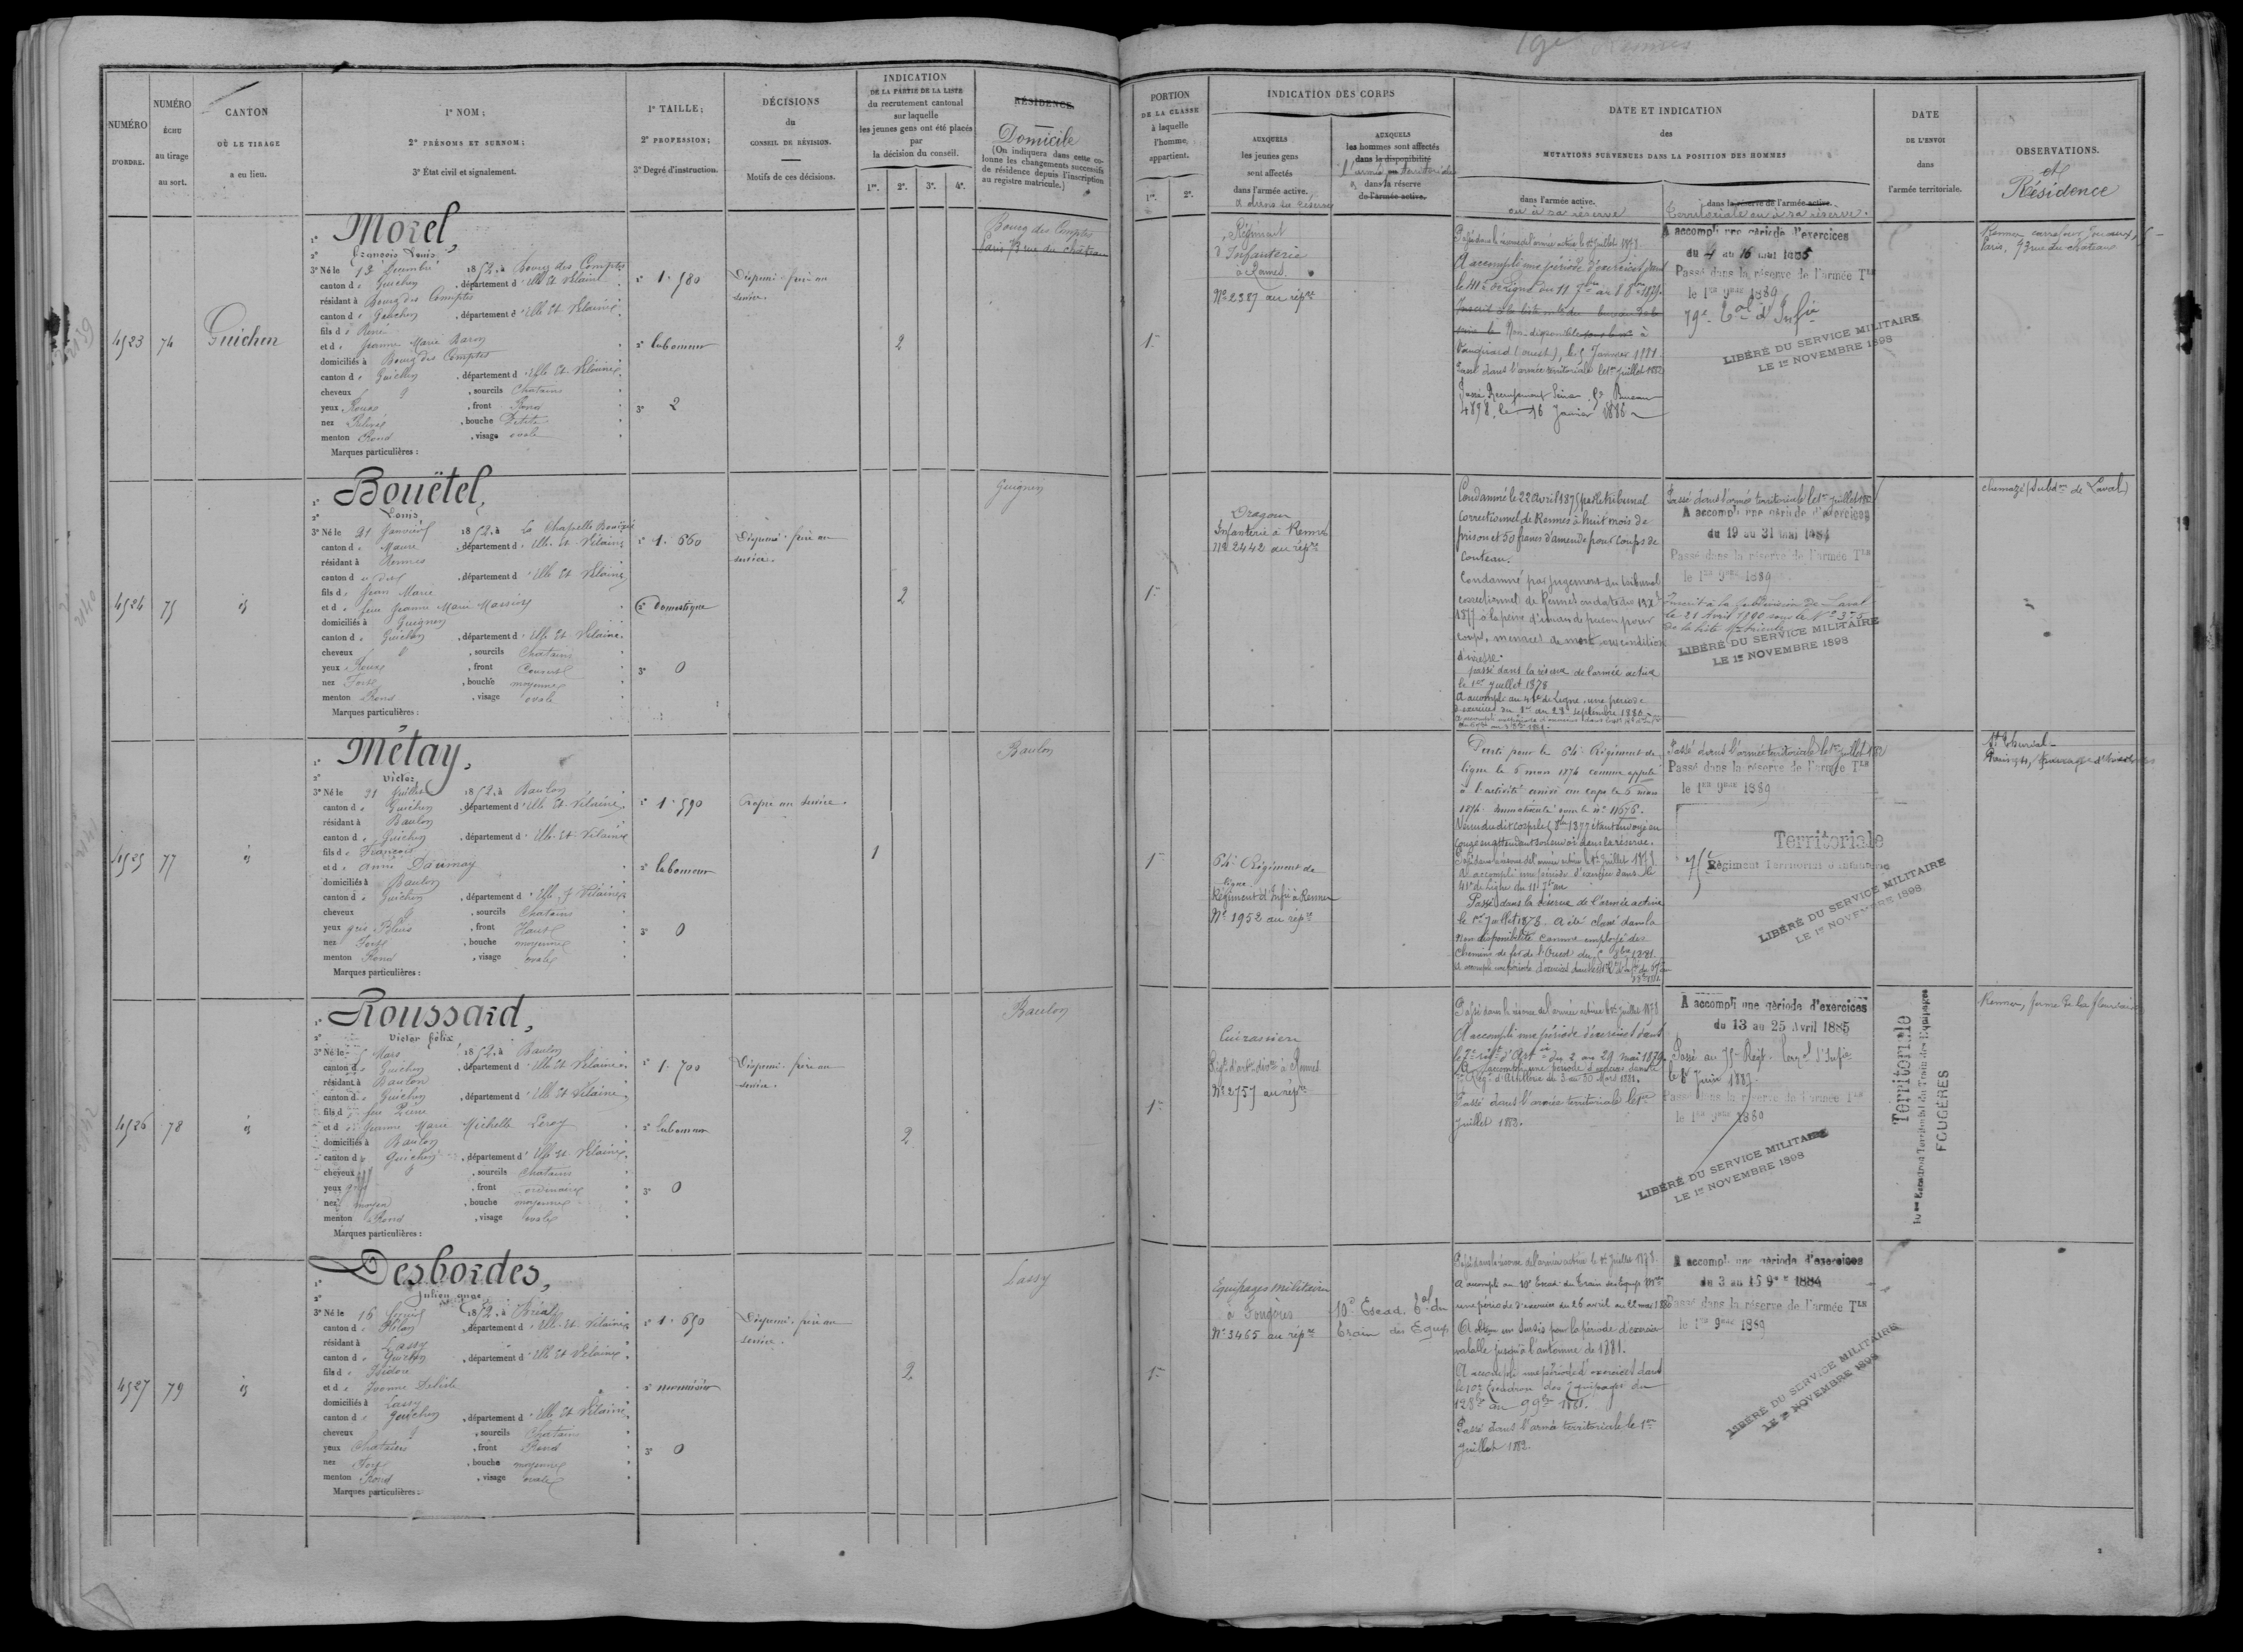 NUMÉRO
D'ORDRE.
NUMÉRO
ÉCHU
au tirage
au sort.
CANTON
OÙ LE TIRAGE
a eu lieu.
1° NOM;
2° PRÉNOMS ET SURNOM;
3° État civil et signalement.
1° TAILLE;
2° PROFESSION;
3° Degré d'instruction.
DÉCISIONS
du
CONSEIL DE RÉVISION.
Motifs de ces décisions.
INDICATION
DE LA PARTIE DE LA LISTE
du recrutement cantonal
sur laquelle
les jeunes gens ont été placés
par
la décision du conseil.
1re. 2e. 3e. 4e.
RÉSIDENCE.
Domicile
(On indiquera dans cette co-
lonne les changements successifs
de résidence depuis l'inscription
au registre matricule.)
4523
74
Guichen
1° Morel,
2° François Louis
3° Né le 12 Décembre 1852, à Bourg des Comptes
canton de Guichen, département d'Ille Et Vilaine
résidant à Bourg des Comptes
canton de Guichen, département d'Ille Et Vilaine
fils de René
et de Jeanne Marie Baron
domiciliés à Bourg des Comptes
canton de Guichen, département d'Ille Et Vilaine
cheveux, sourcils Chatains
yeux Roux, front Rond
nez Relevé, bouche Petite
menton Rond, visage ovale
Marques particulières :
1° 1.580
2° laboureur
3° 2
Dispensé. frère au
service.
2
Bourg des Comptes
Paris 73 rue du château
4524
75
id
1° Bouëtel,
2° Louis
3° Né le 21 Janvier 1852, à La Chapelle Bouëxic
canton de Maure, département d'Ille Et Vilaine
résidant à Rennes
canton de dud, département d'Ille Et Vilaine
fils de Jean Marie
et de feue Jeanne Marie Massiot
domiciliés à Guignen
canton de Guichen, département d'Ille Et Vilaine
cheveux, sourcils Chatains
yeux Roux, front Couvert
nez Fort, bouche moyenne
menton Rond, visage ovale
Marques particulières :
1° 1.660
2° domestique
3° 0
Dispensé. frère au
service.
2
Guignen
4525
77
id
1° Métay,
2° Victor
3° Né le 21 Juillet 1852, à Baulon
canton de Guichen, département d'Ille Et Vilaine
résidant à Baulon
canton de Guichen, département d'Ille Et Vilaine
fils de François
et de Anne
domiciliés à Baulon
canton de Guichen, département d'Ille Et Vilaine
cheveux, sourcils Chatains
yeux gris Bleus, front Haut
nez Fort, bouche moyenne
menton Rond, visage ovale
Marques particulières :
1° 1.590
2° laboureur
3° 0
Propre au service.
1
Baulon
4526
78
id
1° Roussard,
2° Victor Félix
3° Né le 5 Mars 1852, à Baulon
canton de Guichen, département d'Ille Et Vilaine
résidant à Baulon
canton de Guichen, département d'Ille Et Vilaine
fils de feu Pierre
et de Jeanne Marie Michelle Leroy
domiciliés à Baulon
canton de Guichen, département d'Ille Et Vilaine
cheveux, sourcils Chatains
yeux gris, front ordinaire
nez moyen, bouche moyenne
menton Rond, visage ovale
Marques particulières :
1° 1.700
2° laboureur
3° 0
Dispensé. frère au
service.
2
Baulon
4527
79
id
1° Desbordes,
2° Julien ange
3° Né le 16, 1852, à Bréal
canton de Plélan, département d'Ille Et Vilaine
résidant à Lassy
canton de Guichen, département d'Ille Et Vilaine
fils de Isidore
et de Yvonne Delisle
domiciliés à Lassy
canton de Guichen, département d'Ille Et Vilaine
cheveux, sourcils Chatains
yeux Chatains, front Rond
nez Fort, bouche moyenne
menton Rond, visage ovale
Marques particulières :
1° 1.650
2° menuisier
3° 0
Dispensé. frère au
service.
2
Lassy
19e Rennes
PORTION
DE LA CLASSE
à laquelle
l'homme
appartient.
1re. 2e.
INDICATION DES CORPS
AUXQUELS
les jeunes gens
sont affectés
dans l'armée active.
et dans sa réserve
AUXQUELS
les hommes sont affectés
dans la disponibilité
l'armée territoriale
dans la réserve
de l'armée active.
DATE ET INDICATION
des
MUTATIONS SURVENUES DANS LA POSITION DES HOMMES
dans l'armée active.
ou à sa réserve
dans la réserve de l'armée active.
territoriale ou à sa réserve.
DATE
DE L'ENVOI
dans
l'armée territoriale.
OBSERVATIONS.
et
Résidence
1re
Régiment
d'Infanterie
à Rennes.
No 2387 au répre
Passé dans la réserve de l'armée active le 1er Juillet 1878.
A accompli une période d'exercices dans
le 41e de ligne du 11 7bre au 8 8bre 1879.
Non disponible à
Vaugirard (ouest), le 5 Janvier 1881.
Passé dans l'armée territoriale le 1er juillet 1882
4898. le 16 Janvier 1886
A accompli une période d'exercices
du 4 au 16 mai 1885
Passé dans la réserve de l'armée Tle
le 1er 9bre 1889
79e Tal d'Infie
LIBÉRÉ DU SERVICE MILITAIRE
LE 1er NOVEMBRE 1898
Rennes carrefour Jouaux, 5
Paris, 73 rue du château
1re
Dragons
Infanterie à Rennes
No 2442 au répre
Condamné le 22 Avril 1875 par le tribunal
correctionnel de Rennes à huit mois de
prison et 50 francs d'amende pour coups de
couteau.
Condamné par jugement du tribunal
correctionnel de Rennes en date du
1877 à la peine d'un an de prison pour
coups, menaces de mort sous condition
d'ivresse.
passé dans la réserve de l'armée active
le 1er Juillet 1878
A accompli au 41e de Ligne une période
d'exercices du 1er au 28 septembre 1880
Passé dans l'armée territoriale le 1er Juillet 1882
A accompli une période d'exercices
du 19 au 31 mai 1884
Passé dans la réserve de l'armée Tle
le 1er 9bre 1889
Inscrit à la subdivision de Laval
le 21 Avril 1890 sous le No 375
de la liste Matricule
LIBÉRÉ DU SERVICE MILITAIRE
LE 1er NOVEMBRE 1898
chemazé (subdon de Laval)
1re
64e Régiment de
ligne
Régiment d'Infie à Rennes
No 1952 au répre
Parti pour le 64e Régiment de
ligne le 6 mars 1874 comme appelé
à l'activité arrivé au corps le 6 mars
1874. immatriculé sous le no 11678.
Venu dudit corps le 5 8bre 1877 étant envoyé en
congé en attendant son envoi dans la réserve.
Passé dans la réserve de l'armée active le 1er Juillet 1878
A accompli une période d'exercices dans le
41e de Ligne du 11 7bre au
Passé dans la réserve de l'armée active
le 1er Juillet 1878. A été classé dans la
non disponibilité comme employé des
chemins de fer de l'Ouest du 5 8bre 1881.
Passé dans l'armée territoriale le 1er Juillet 1882
Passé dans la réserve de l'armée Tle
le 1er 9bre 1889
Territoriale
75e Régiment Territorial d'Infanterie
LIBÉRÉ DU SERVICE MILITAIRE
LE 1er NOVEMBRE 1898
St Thurial
1re
Cuirassiers
Régt d'artie divre à Rennes
No 2757 au répre
Passé dans la réserve de l'armée active le 1er Juillet 1878.
A accompli une période d'exercices dans
le 7e régt d'Artie du 2 au 29 mai 1879.
A accompli une période d'exercices dans le
7e Régt d'Artillerie du 3 au 30 Mars 1881.
Passé dans l'armée territoriale le 1er
Juillet 1882.
A accompli une période d'exercices
du 13 au 25 Avril 1885
Passé au 75e Régt Terral d'Infie
le 8 Juin 1887.
Passé dans la réserve de l'armée Tle
le 1er 9bre 1889
LIBÉRÉ DU SERVICE MILITAIRE
LE 1er NOVEMBRE 1898
Territoriale
10me Escadron Territorial du Train des Equipages
FOUGÈRES
Rennes, ferme de la
1re
Equipages militaires
à Fougères
No 3465 au répre
10e Escad. Tal du
Train des Equip
Passé dans la réserve de l'armée active le 1er Juillet 1878.
A accompli au 10e Escad. du Train des Equip. Mres
une période d'exercices du 26 avril au 22 mai 1880
A obtenu un sursis pour la période d'exercices
valable jusqu'à l'automne de 1881.
A accompli une période d'exercices dans
le 10e Escadron des Equipages du
12 8bre au 9 9bre 1881.
Passé dans l'armée territoriale le 1er
Juillet 1882.
A accompli une période d'exercices
du 3 au 15 9bre 1884
Passé dans la réserve de l'armée Tle
le 1er 9bre 1889
LIBÉRÉ DU SERVICE MILITAIRE
LE 1er NOVEMBRE 1898